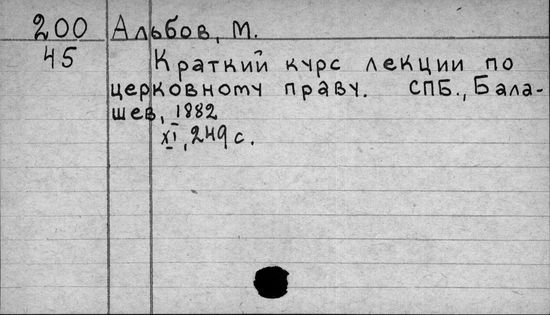 200 Альбов, М.
45 Краткий курс лекции по
церковному праву. СПБ., Бала-
шев, 1882
XI, 249 с.